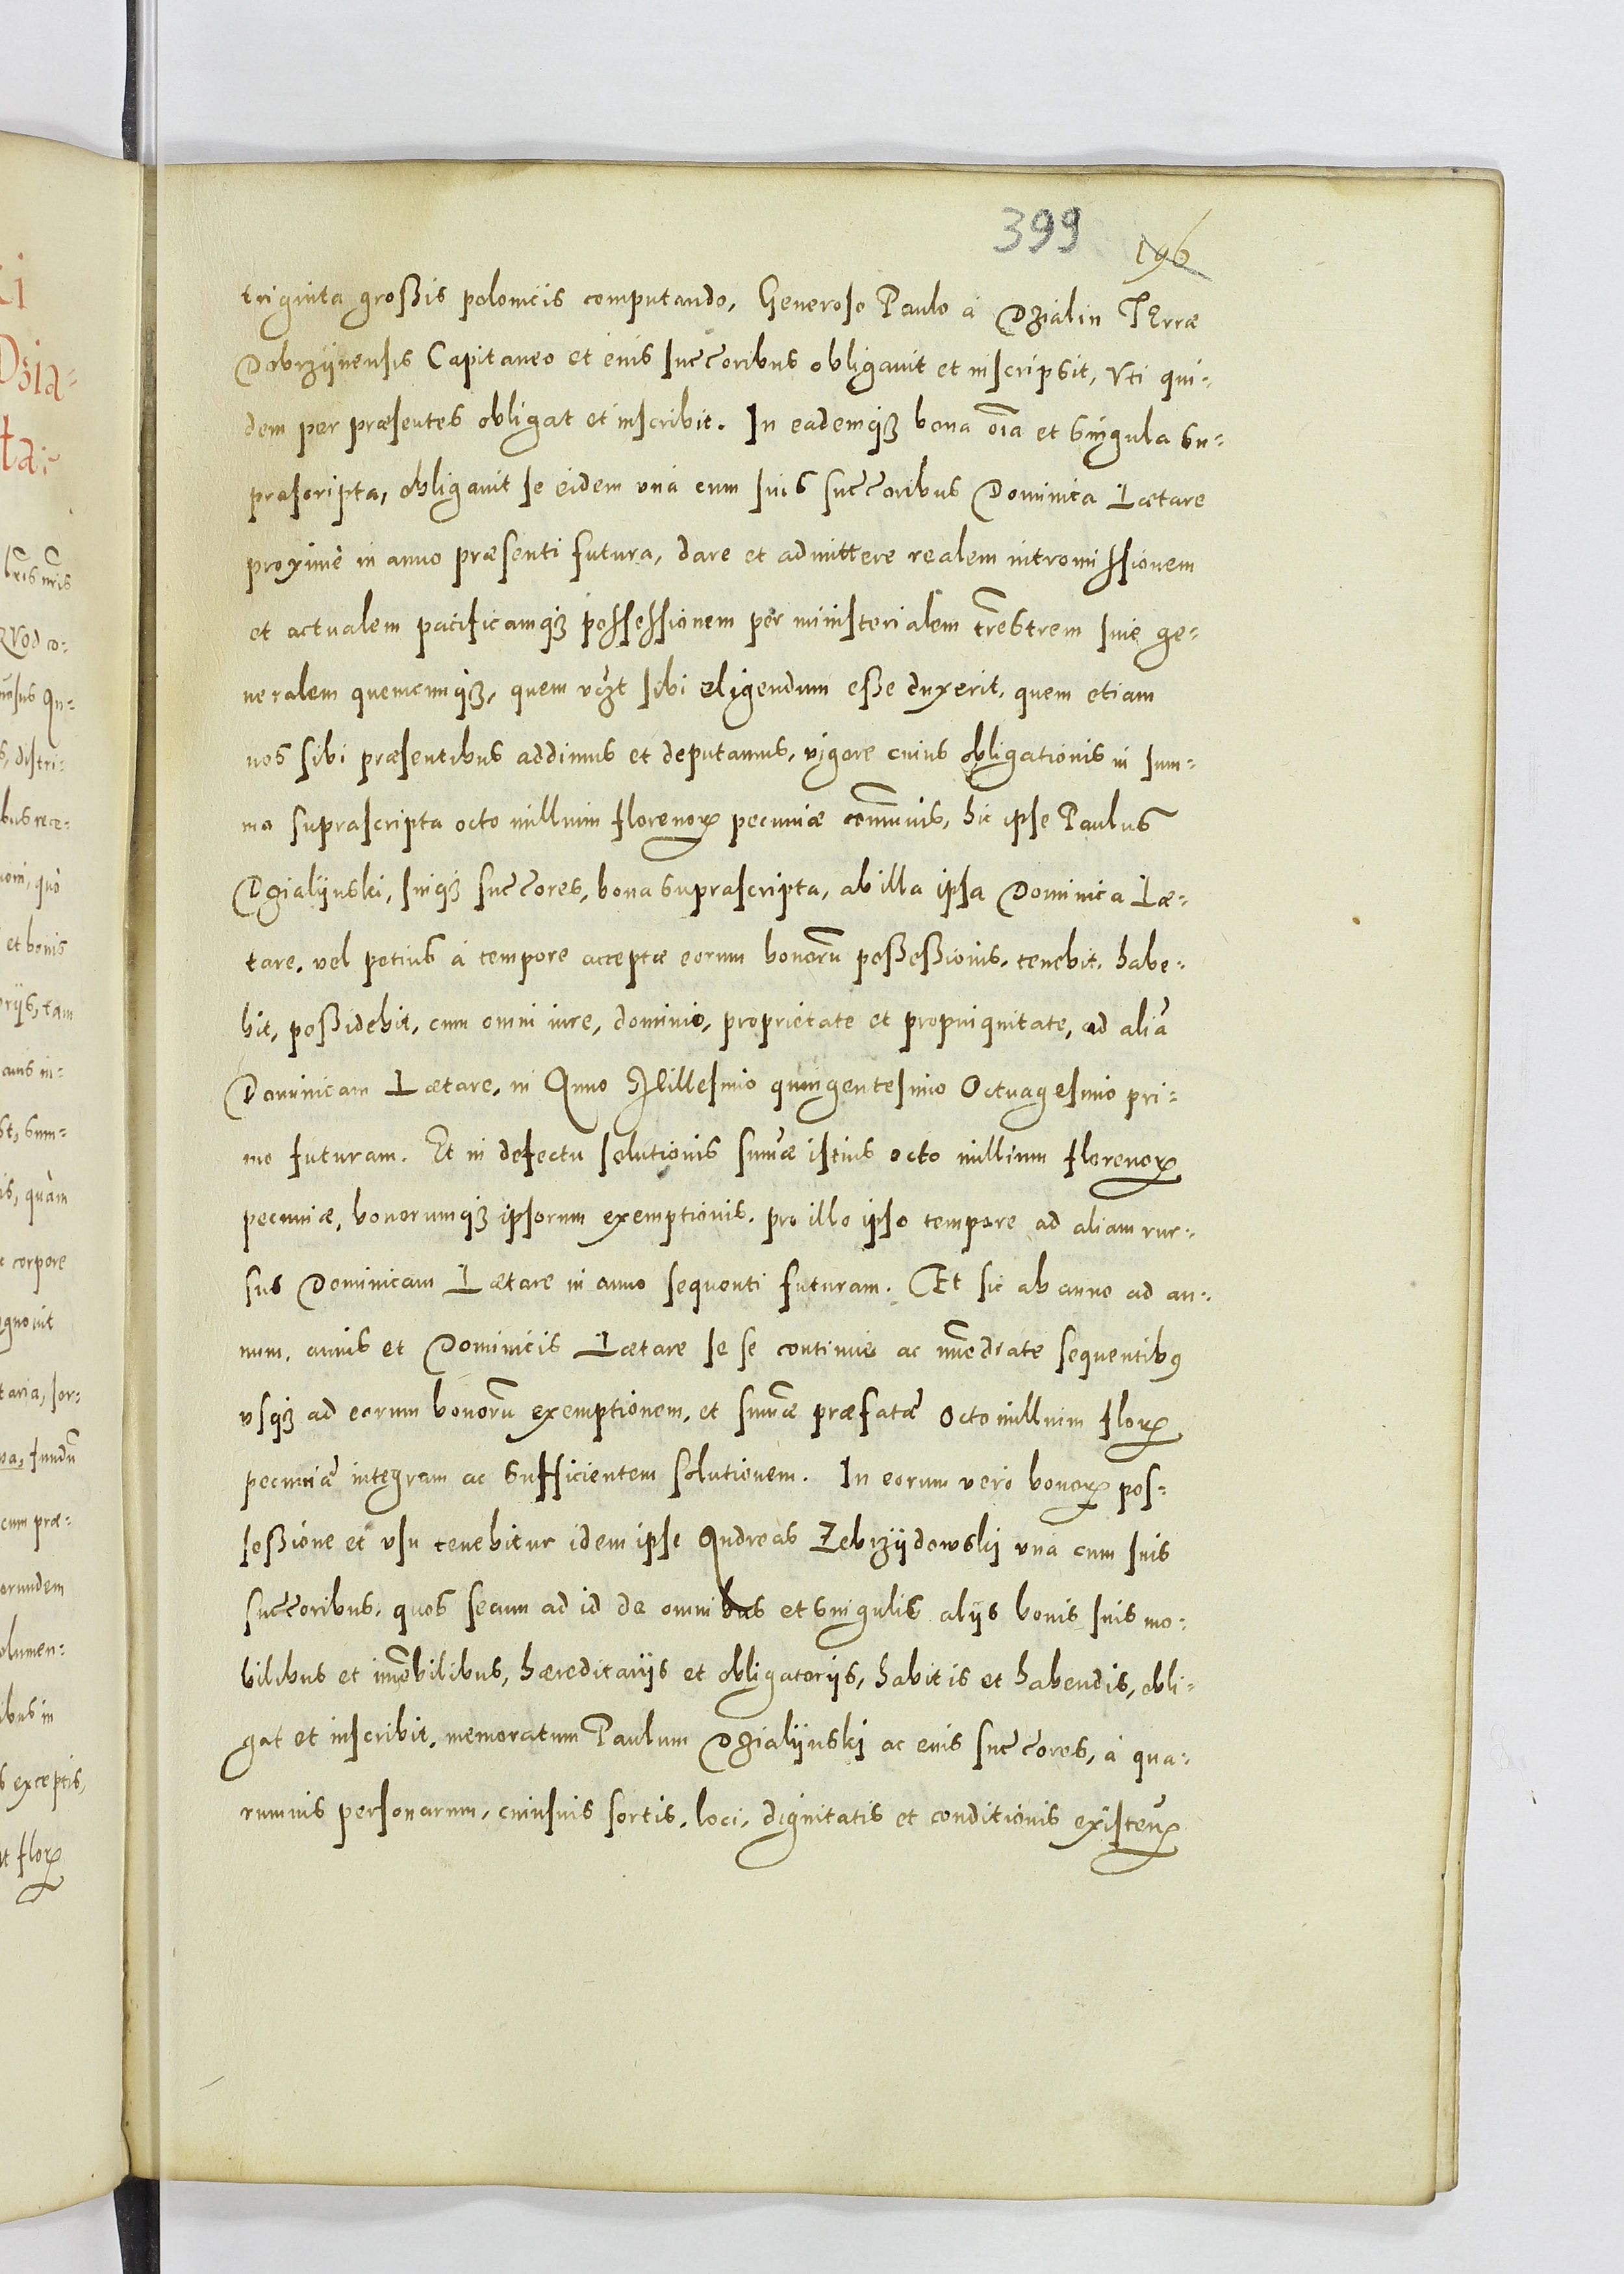 399 196
triginta großis polonicis computando, Generoso Paulo à Dzialin TErræ
Dobrzijnensis Capitaneo et eius succoribus obligauit et inscripsit, Vti qui-
dem per præsentes obligat et inscribit. In eademqȝ bona oīa et singula su-
prascripta, obligauit se eidem vnà cum suis succoribus Dominica Lætare
proximè in anno præsenti futura, dare et admittere realem intromissionem
et actualem pacificamqȝ possessionem per ministerialem trēstrem siue ge-
neralem quemcunqȝ, quem vcȝt sibi eligendum eße duxerit, quem etiam
nos sibi præsentibus addimus et deputamus, vigore cuius obligationis in sum-
ma suprascripta octo millium florenoꝝ pecuniæ com̄unis, hic ipse Paulus
Dzialijnski, suiqȝ succores, bona suprascripta, ab illa ipsa Dominica Læ-
tare, vel potius à tempore acceptæ eorum bonorū poßeßionis, tenebit, habe-
bit, poßidebit, cum omni iure, dominio, proprietate et propinquitate, ad aliā
Dominicam Lætare, in Anno Millesimo quingentesimo Octuagesimo pri-
mo futuram. Et in defectu solutionis sum̄æ istius octo millium florenoꝝ
pecuniæ, bonorumqȝ ipsorum exemptionis, pro illo ipso tempore ad aliam rur-
sus Dominicam Lætare in anno sequenti futuram. Et sic ab anno ad an-
num, annis et Dominicis Lætare se se continuè ac im̄ediate sequentibꝰ
vsqȝ ad eorum bonorū exemptionem, et sum̄æ præfatæ Octo millium floꝝ
pecuniæ integram ac sufficientem solutionem. In eorum verò bonoꝝ pos-
seßione et vsu tenebitur idem ipse Andreas Zebrzijdowskij vnà cum suis
succoribus, quos secum ad id de omnibus et singulis alijs bonis suis mo-
bilibus et im̄obilibus, hæreditarijs et obligatorijs, habitis et habendis, obli-
gat et inscribit, memoratum Paulum Dzialijnskj ac eius succores, à qua-
rumuis personarum, cuiusuis sortis, loci, dignitatis et conditionis existenꝝ